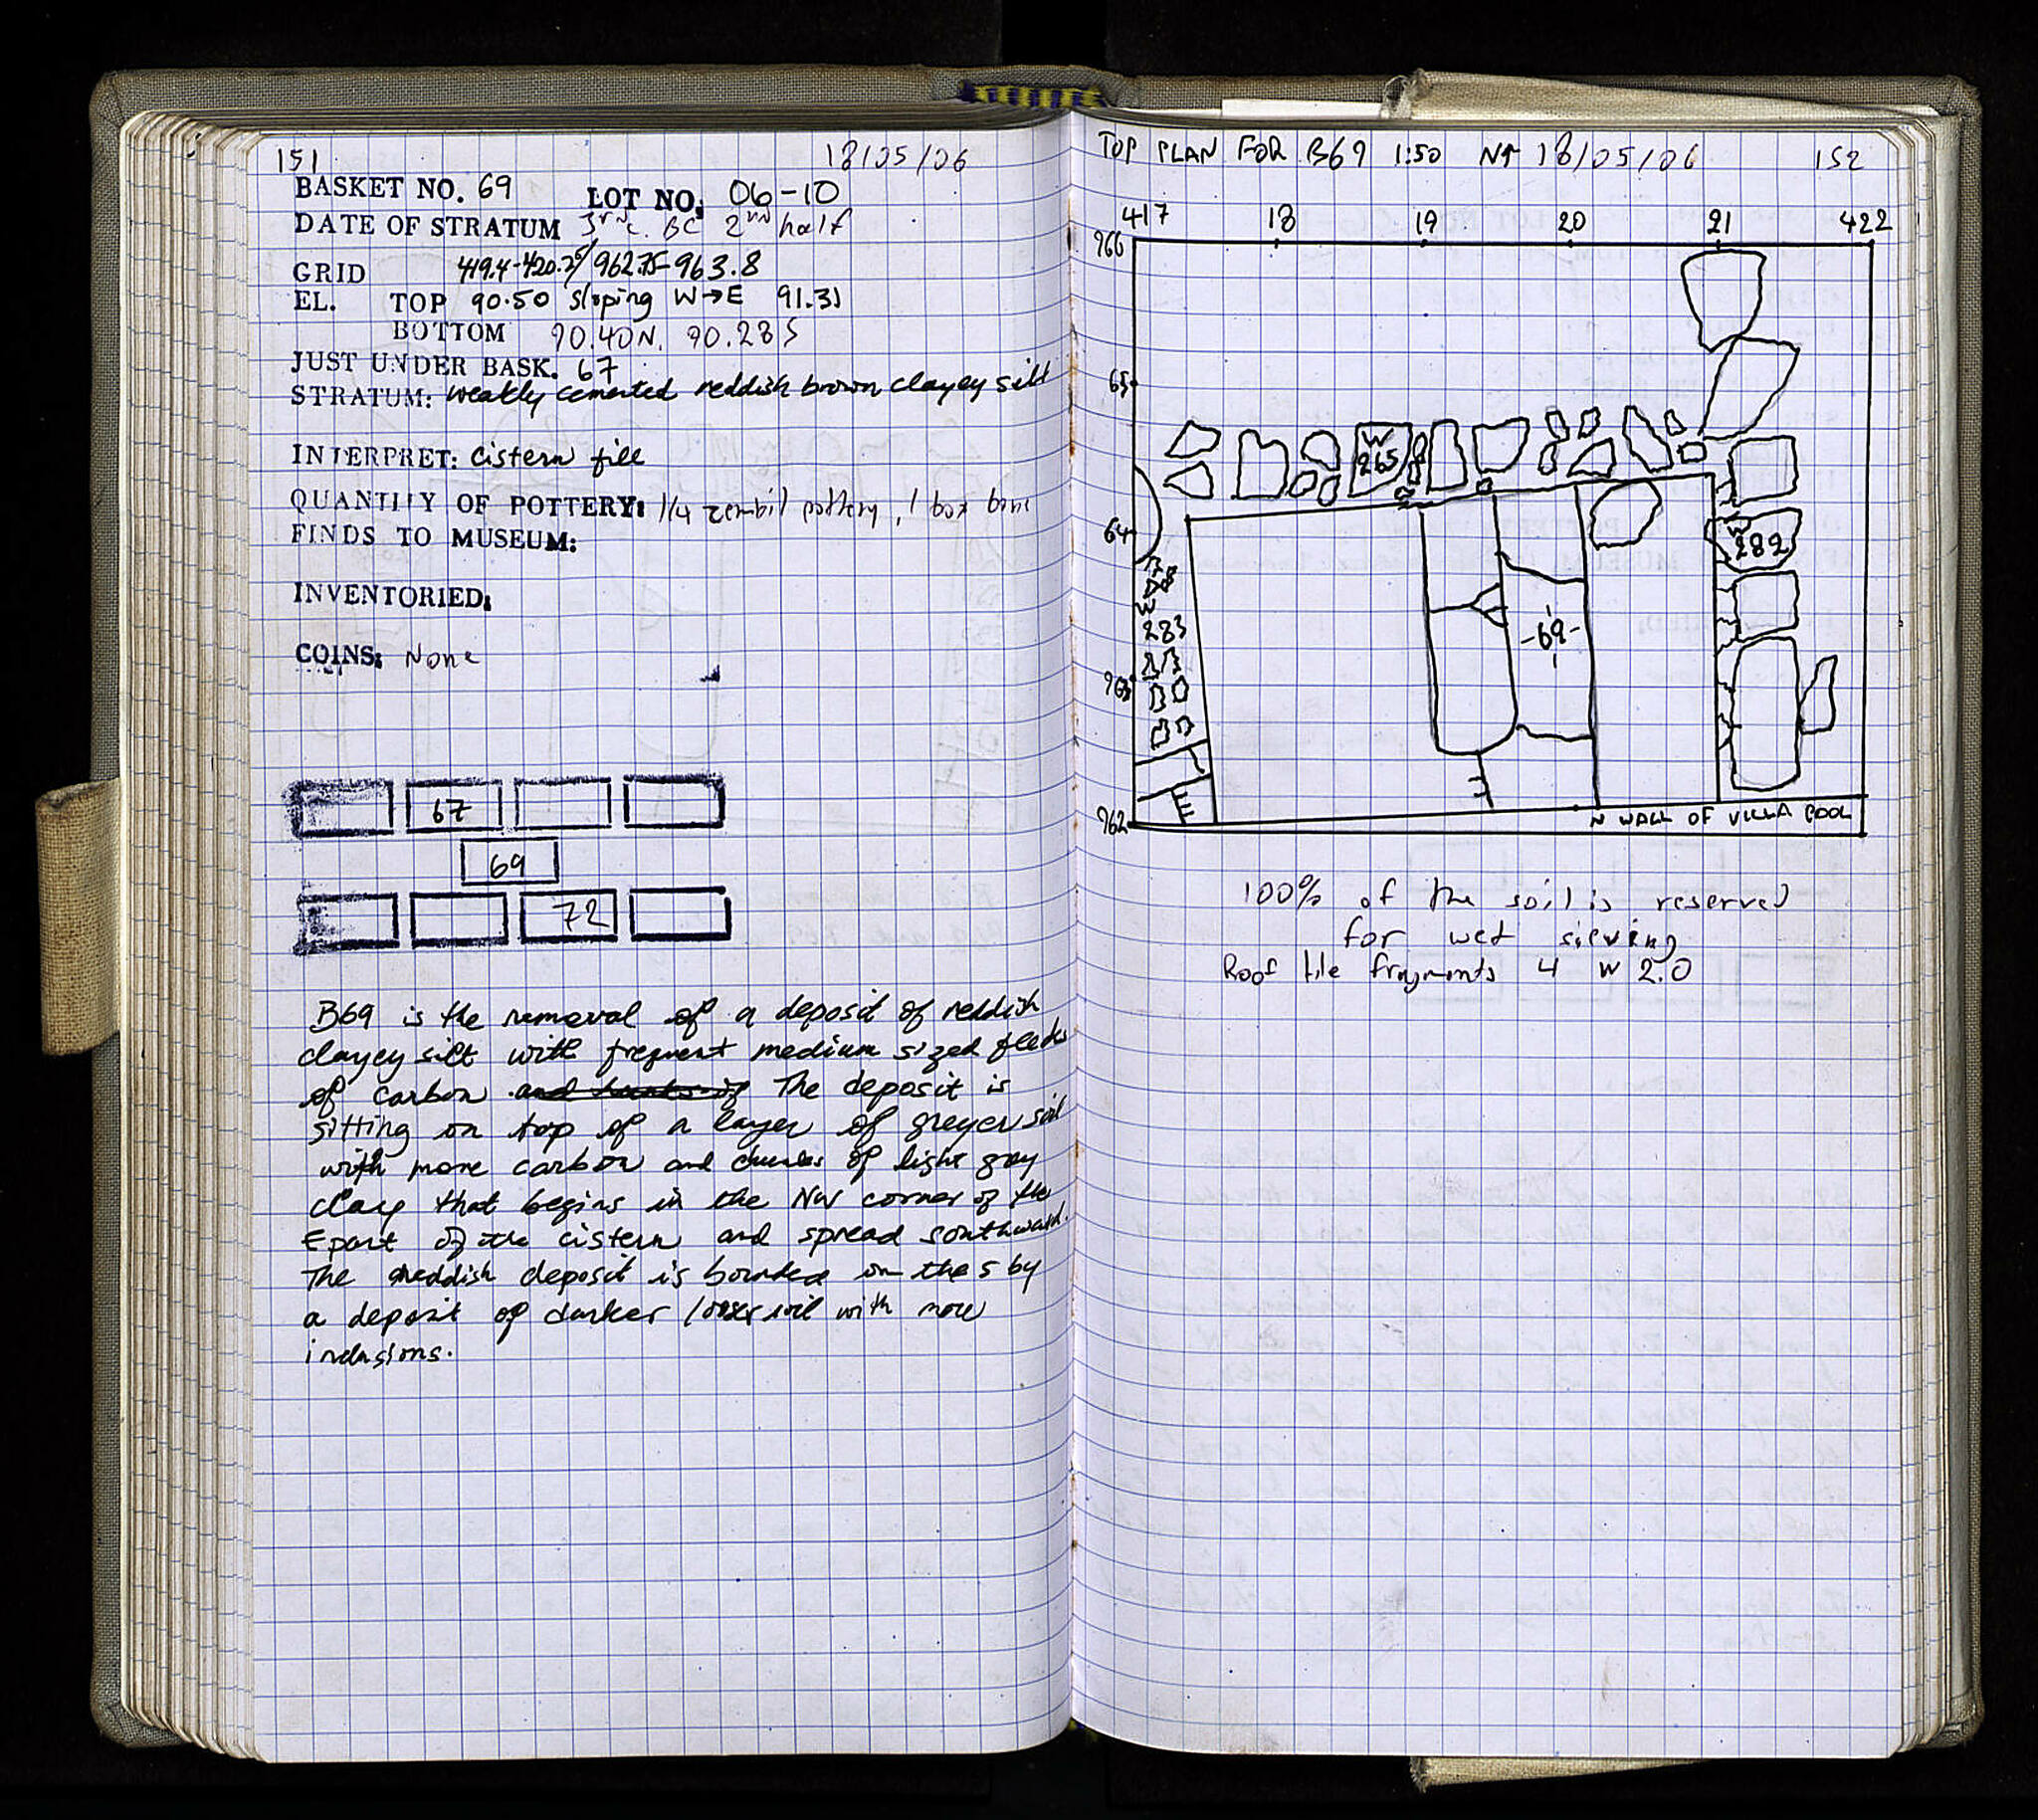 151 18/05/06
BASKET NO. 69 LOT NO: 06-10
DATE OF STRATUM 3rd c. BC 2nd half
GRID 419.4-420.25/962.75-963.8
EL. TOP 90.50 sloping W→E 91.31
BOTTOM 90.40N. 90.28S
JUST UNDER BASK. 67
STRATUM: weakly cemented reddish brown clayey silt
INTERPRET: cistern fill
QUANTITY OF POTTERY: 1/4 zembil pottery, 1 box bone
FINDS TO MUSEUM:
INVENTORIED:
COINS: None
67
69
72
B69 is the removal of a deposit of reddish
clayey silt with frequent medium sized flecks
of carbon The deposit is
sitting on top of a layer of greyer soil
with more carbon and chunks of light gray
clay that begins in the NW corner of the
E part of the cistern and spread southward.
The reddish deposit is bounded on the S by
a deposit of darker looser soil with more
inclusions.
TOP PLAN FOR B69 1:50 N↑ 18/05/06 152
417 18 19 20 21 422
966
65
W
265
64
W
282
W
283
-69-
963
962
N WALL OF VILLA POOL
100% of the soil is reserved
for wet sieving
Roof tile fragments 4 W 2.0